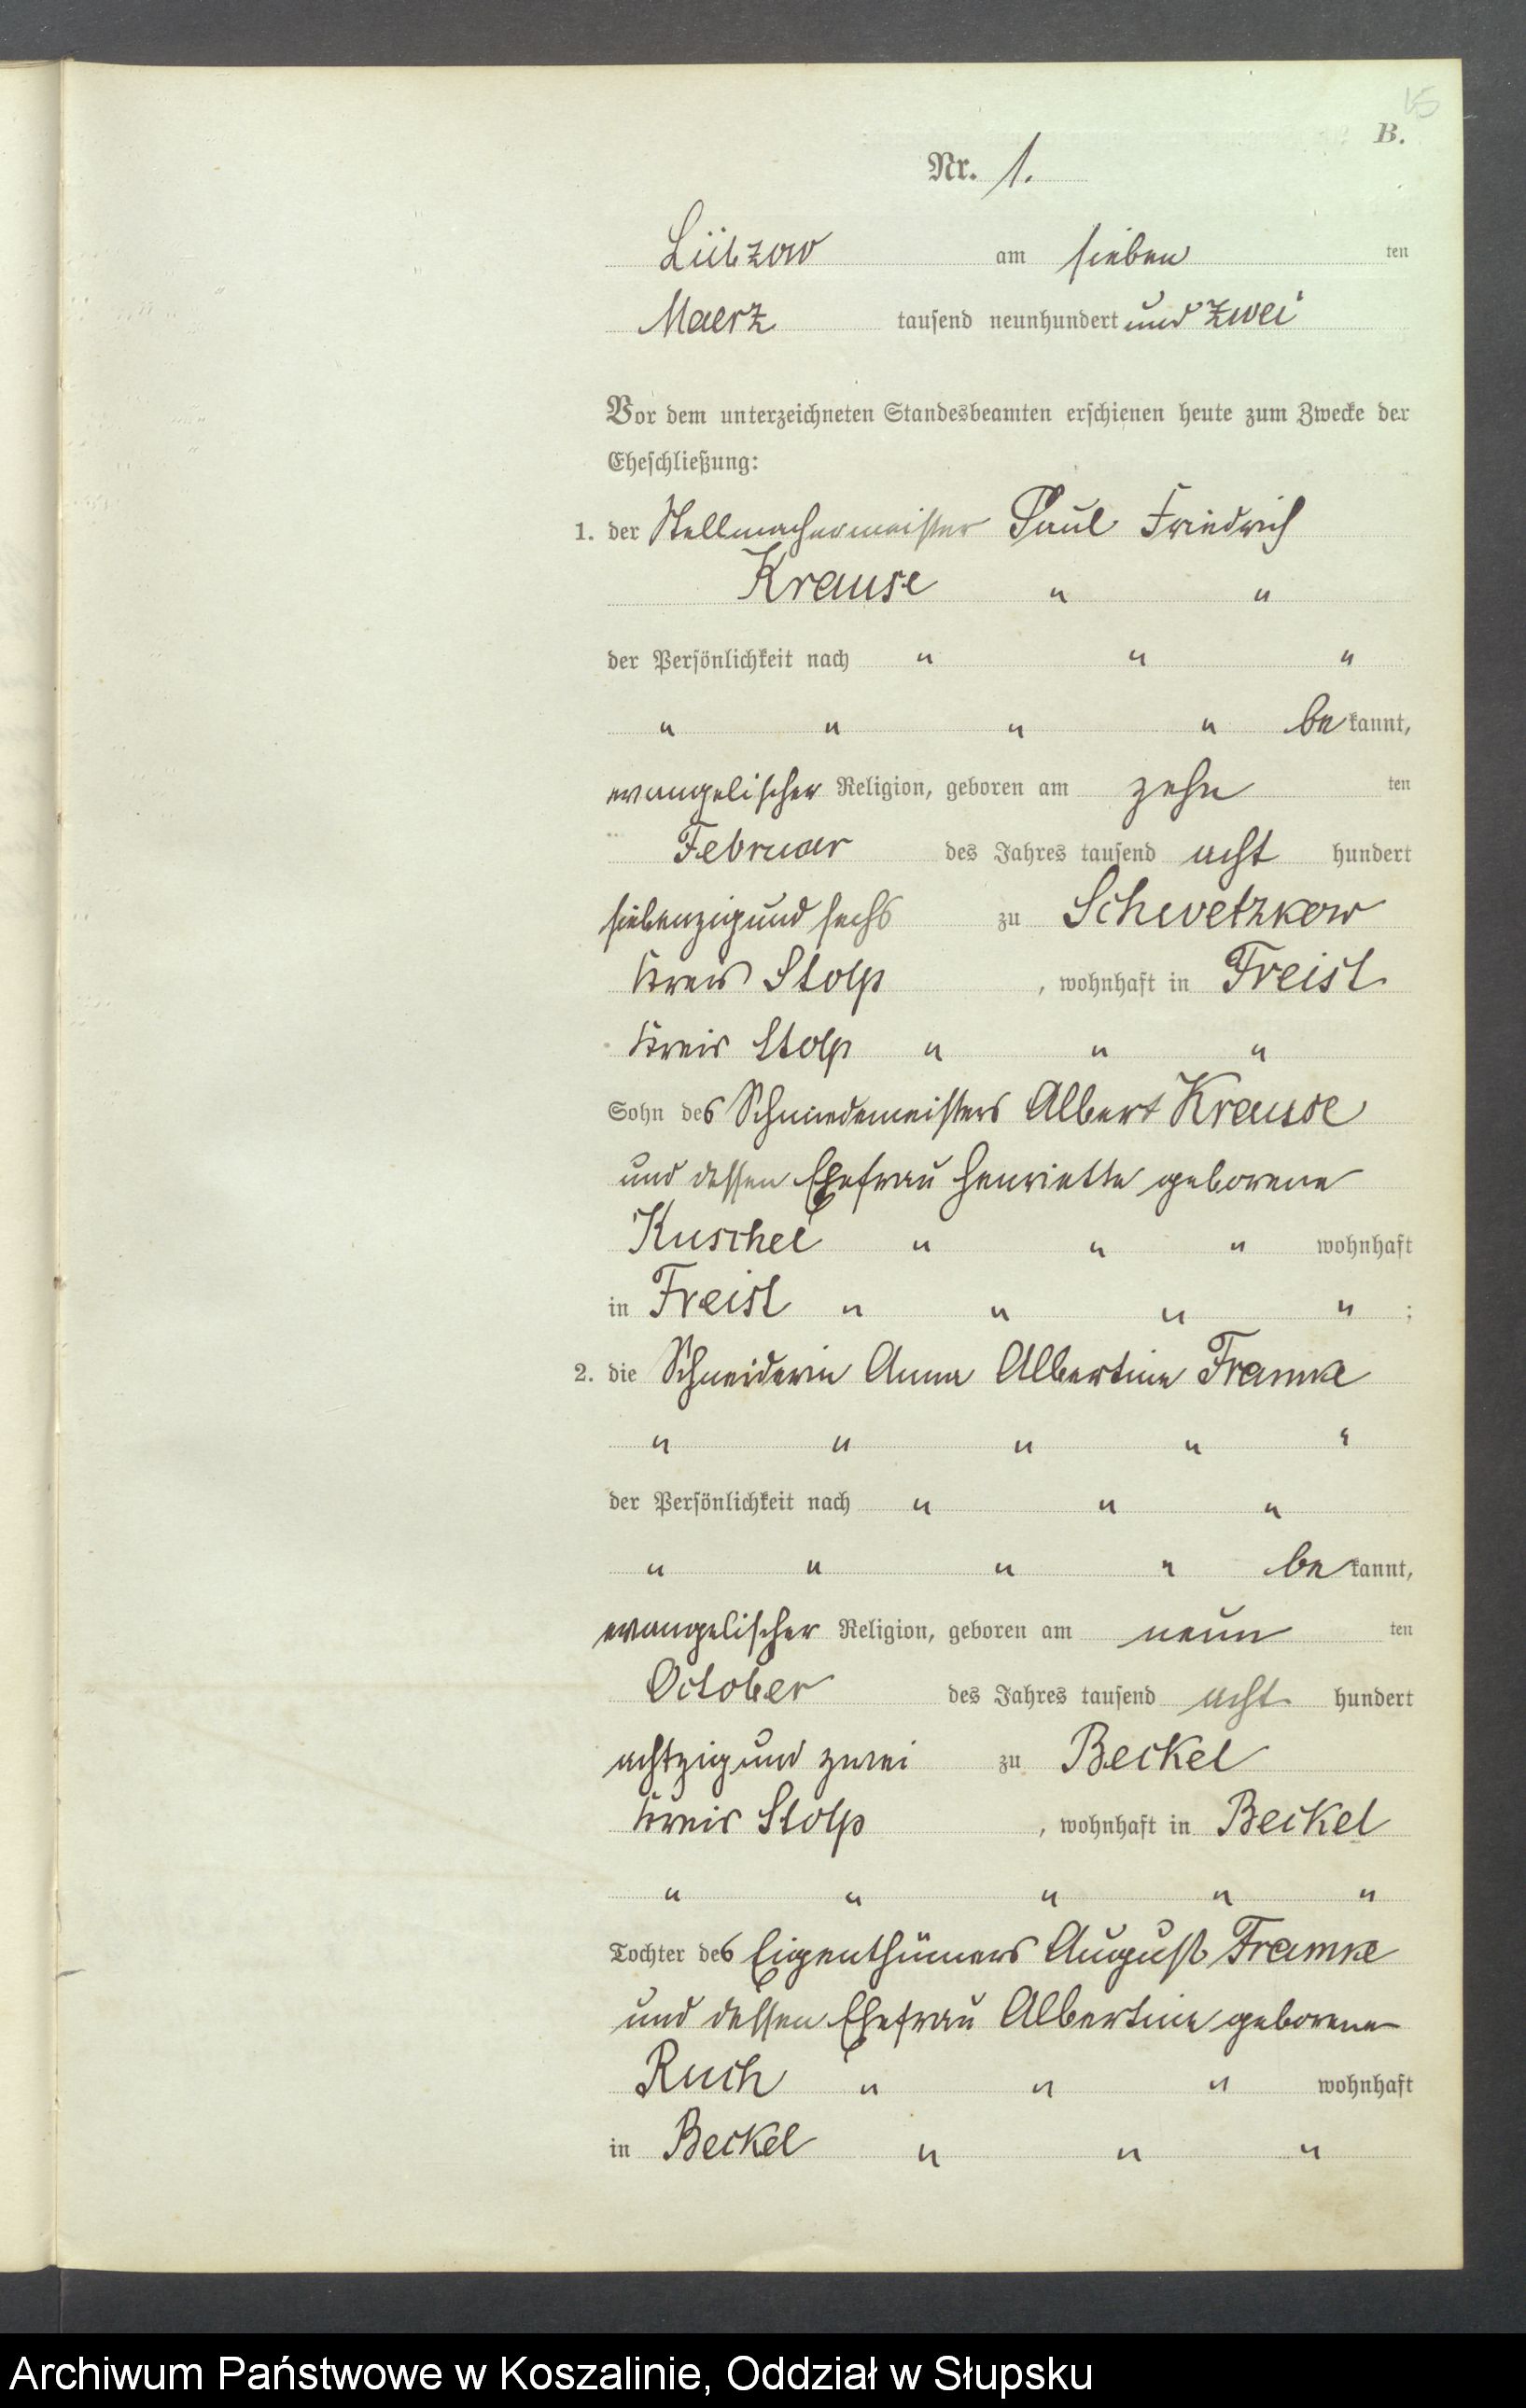 15
B.
Nr. 1.
Lübzow am sieben ten
Maerz tausend neunhundert und zwei
Vor dem unterzeichneten Standesbeamten erschienen heute zum Zwecke der
Eheschließung:
1. der Stellmachermeister Paul Friedrich
Krause " "
der Persönlichkeit nach " " "
" " " " be kannt,
evangelischer Religion, geboren am zehn ten
Februar des Jahres tausend acht hundert
siebenzig und sechs zu Schwetzkow
Kreis Stolp , wohnhaft in Freist
Kreis Stolp " " "
Sohn des Schmiedemeisters Albert Krause
und dessen Ehefrau Henriette geborene
Kuschel " " " wohnhaft
in Freist " " " " ;
2. die Schneiderin Anna Albertine Framke
" " " " "
der Persönlichkeit nach " " "
" " " " be kannt,
evangelischer Religion, geboren am neun ten
October des Jahres tausend acht hundert
achtzig und zwei zu Beckel
Kreis Stolp , wohnhaft in Beckel
" " " " "
Tochter des Eigenthümers August Framke
und dessen Ehefrau Albertine geborene
Ruch " " " wohnhaft
in Beckel " " "
Archiwum Państwowe w Koszalinie, Oddział w Słupsku